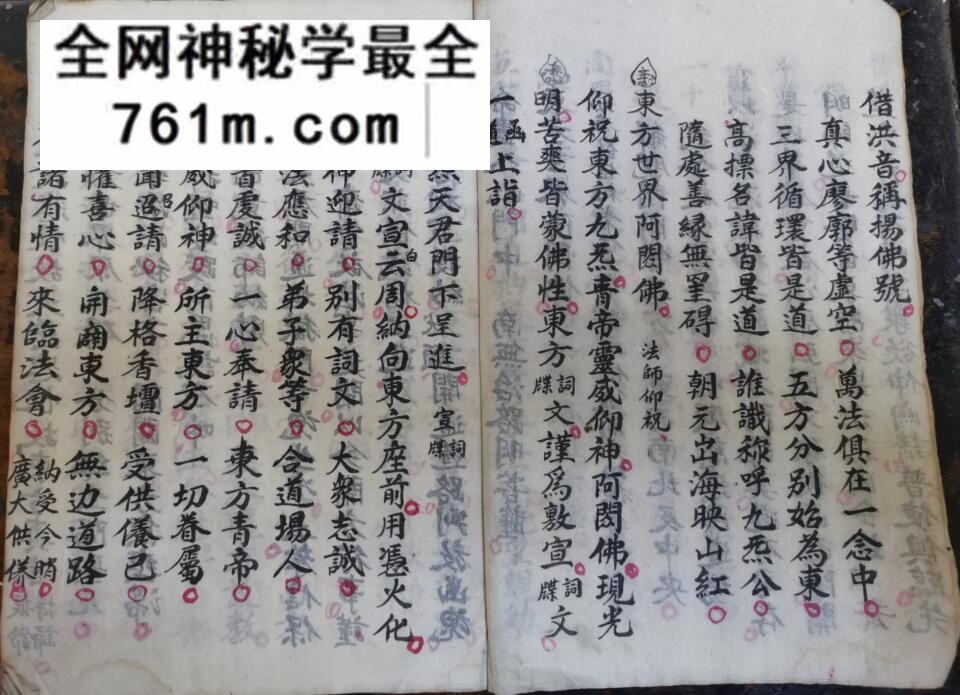 全网神秘学最全
761m.com
借洪音稱揚佛號
真心廖廓等虛空萬法俱在一念中
三界循環皆是道五方分別始為東
高標名諱皆是道誰識称呼九炁公
隨處善緣無罣碍朝元出海映山紅
東方世界阿閦佛 法師仰祝
仰祝東方九炁青帝靈威仰神阿閦佛現光
明苦爽皆蒙佛性東方詞牒文謹為敷宣詞牒文
一函道上詣
天君門下呈進宣詞牒
文宣云周納向東方座前用憑火化
神迎請別有詞文大衆志誠
法應和弟子衆等合道場人
虔誠一心奉請東方青帝
威仰神所主東方一切眷屬
聞迢請降格香壇受供儀已
懽喜心開闢東方無边道路
諸有情來臨法會納受今晡廣大供儀